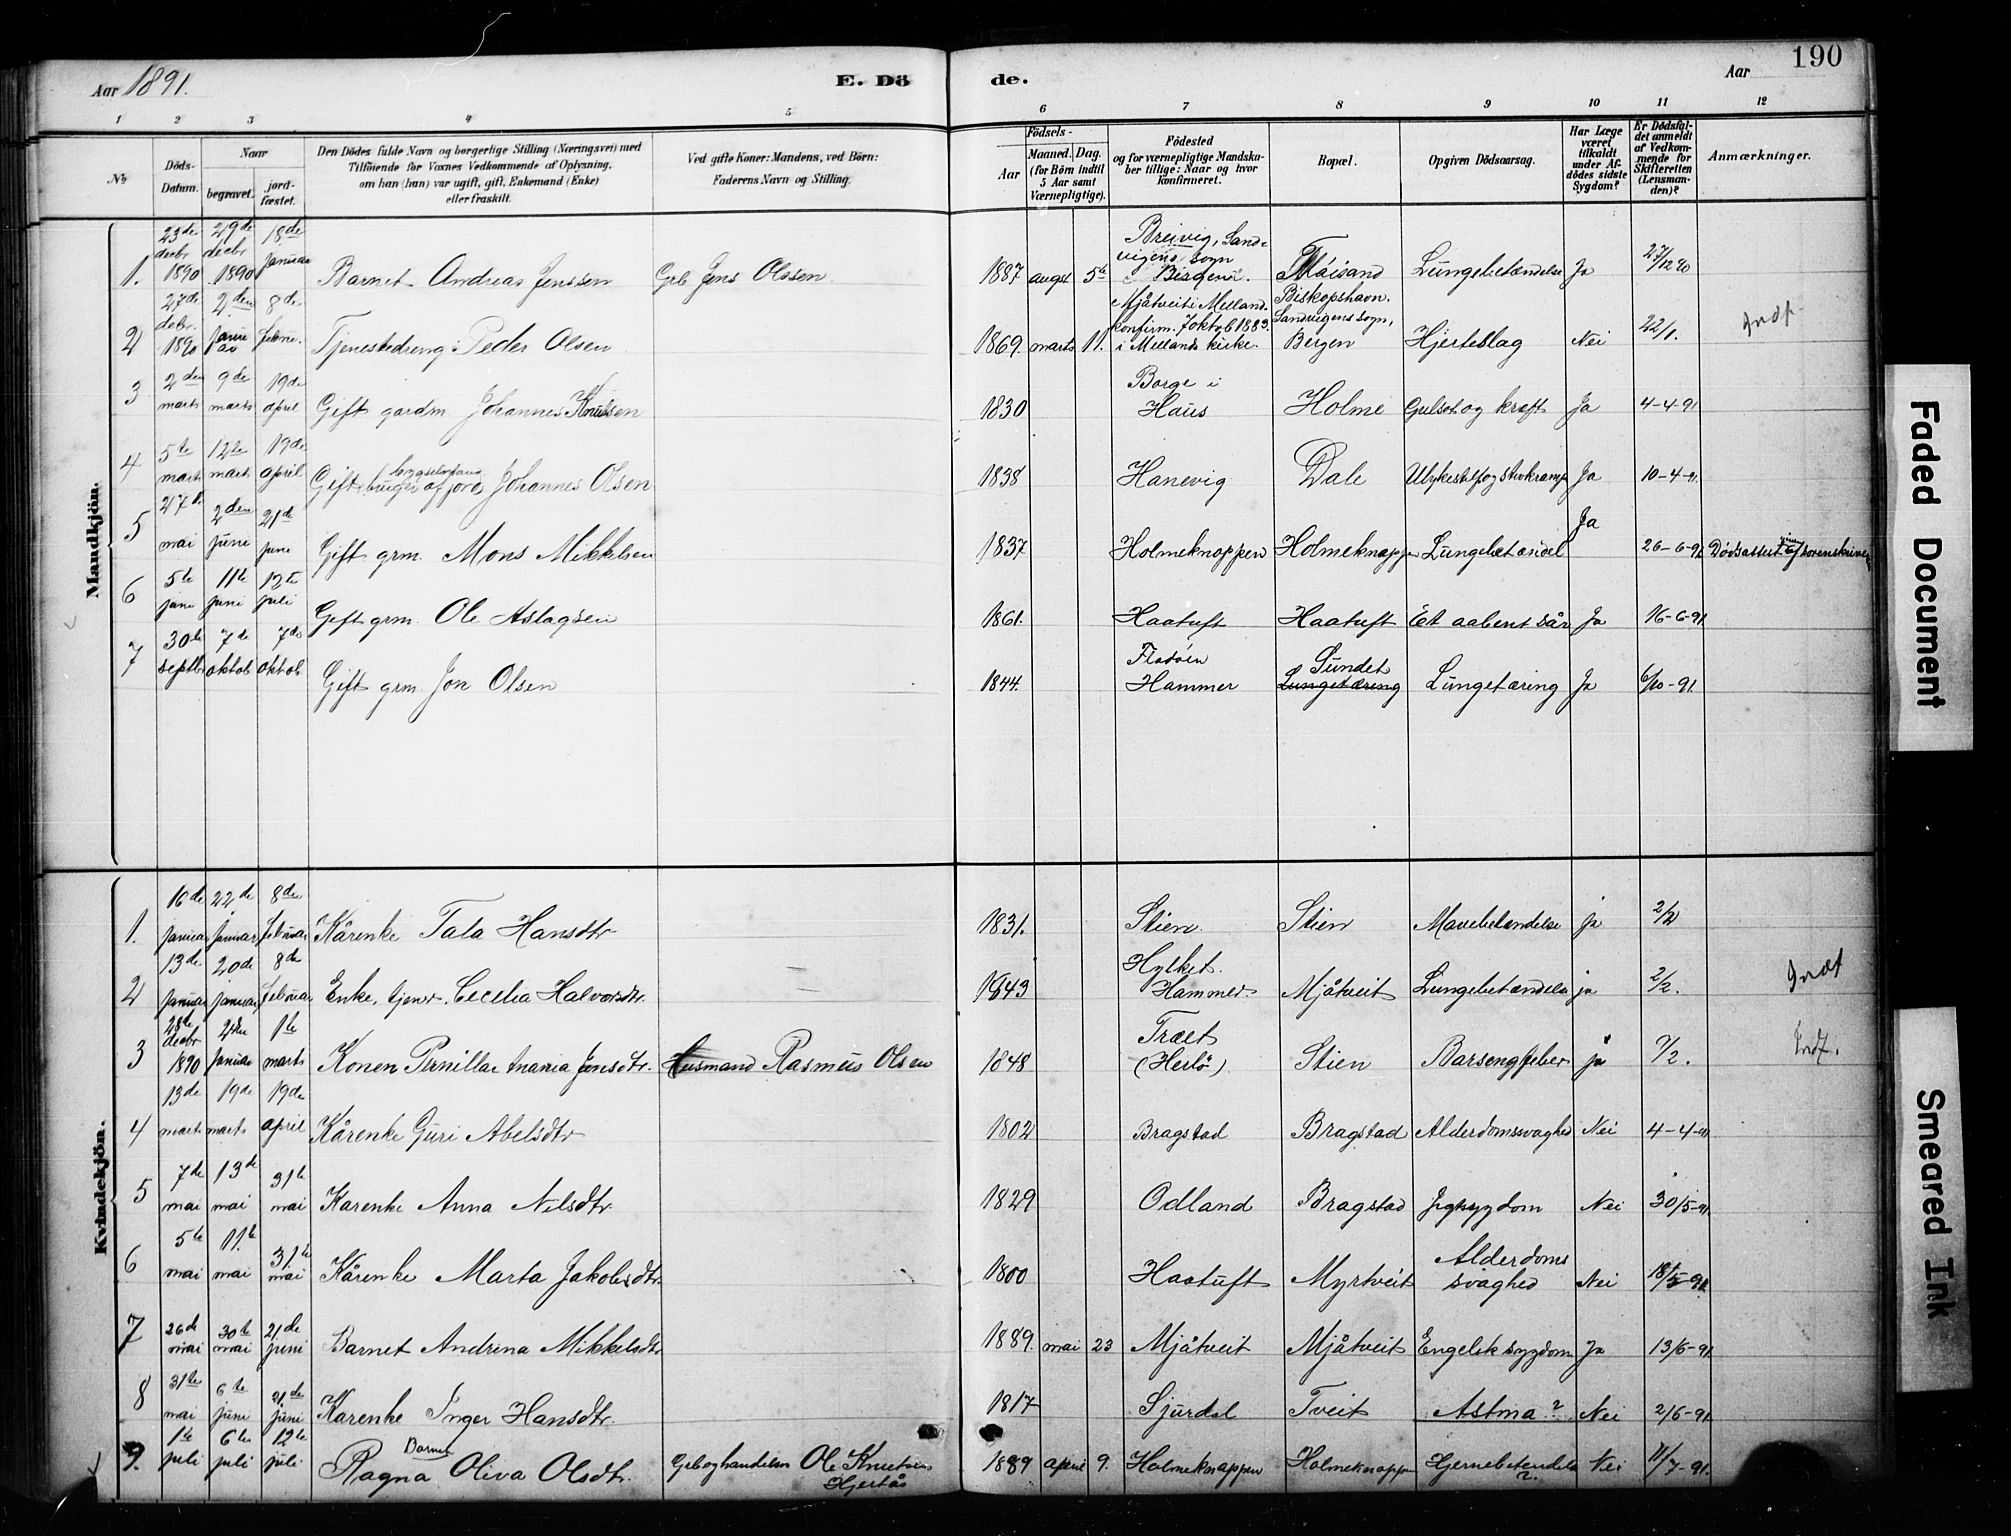 Aar 1891.
E. Dö
de.
Aar
190
1 2 3 4 5 6 7 8 9 10 11 12
No
Döds-Datum.
Naar
begravet.
jord-fæstet.
Den Dödes fulde Navn og borgerlige Stilling (Næringsvei) med
Tilföiende for Voxnes Vedkommende af Oplysning,
om han (hun) var ugift, gift, Enkemand (Enke)
eller fraskilt.
Ved gifte Koner: Mandens, ved Börn:
Faderens Navn og Stilling.
Födsels-
Aar
Maaned.
Dag.
(for Börn indtil
5 Aar samt
Værnepligtige).
Födested
og for værnepligtige Mandska-
ber tillige: Naar og hvor
konfirmeret.
Bopæl.
Opgiven Dödsaarsag.
Har Læge
været
tilkaldt
under Af-
dödes sidste
Sygdom?
Er Dödsfal-
det anmeldt
af Vedkom-
mende for
Skifteretten
(Lensman-
den)?
Anmærkninger.
Mandkjön.
1. 23de decbr 1890 29de decbr 1890 18de Januar Barnet Andreas Jenssen Grb Jens Olssen. 1887 augst 5te Breivig, Sandvigens sogn i Bergen. Maisand Lungebetændelse Ja 27/12 90
2 27de debr. 1890 2den 8de Tjenestedreng Peder Olsen 1869. marts 11. Mjåtveit i Melland. konfirm. 7 oktob 1883. i Mellands kirke. Biskopshavn. Sandvigens sogn, Bergen Hjerteslag Nei 22/1. Indf.
3 2den marts 9de marts 19de april Gift gardm Johannes Knutsen 1830 Borge i Haus Holme Gulsot og kræft Ja 4-4-91
4 5te mart 12te mart 19de april Gift bruger af jord Johannes Olsen 1838 Hanevig Dale Ulykkestilf og stivkramp Ja 10-4-91.
5 27d. mai 2den juni 21de juni Gift grm. Mons Mikkelsen 1837 Holmeknappen Holmeknappe Lungebetændel Ja 26-6-91 Dødsattest sorenskriver
6 5te juni 11te juni 12te juli Gift grm. Ole Aslagsen 1861. Haatuft Haatuft Et aabent sår Ja 16-6-91
7 30de septbr 7de oktob 7de oktob. Gift grm. Jon Olsen 1844. Flatöen Hammer Sundet Lungetæring Lungetæring Ja 6/10-91
Kvindekjön.
1. 16de januar 22de januar 8de Februar Kårenke Tala Hansdtr 1831. Stien. Stien Mavebetændelse ja 2/2
2 13de januar 20de januar 8de februar Enke, tjener. Cecelia Halvorsdtr. 1843 Hylket. Hammer. Mjåtveit Lungebetændels ja 2/2. Indf
3 28de decbr 1890 2den Januar 1te marts Konen Pernillae Anania Jensdtr. Husmand Rasmus Olsen 1848 Træet (Herlö) Stien Barsengfeber ja 9/2. Indf.
4 13de marts 19de marts 19de april Kårenke Guri Abelsdtr 1802 Bragstad Bragstad Alderdomssvaghed Nei 4-4-91
5 7de mai 13de mai 31te mai Karenke Anna Nilsdtr. 1829 Odland Bragstad Jigtsygdom Nei 30/5-91
6 5te mai 11te mai 31te mai Kårenke Marta Jakobsdtr. 1800 Haatuft Myrtveit Alderdoms svaghed Nei 18/5-91
7 26de mai 30te mai 21de juni Barnet Andrina Mikkelsdtr 1889. mai 23 Mjåtveit Mjåtveit Engelsk sygdom Ja 13/6-91
8 31te mai 6te juni 21de juni Karenke Inger Hansdtr. 1817 Sjurdal Tveit Astma? Nei 2/6-91
9. 1te juli 6te juli 12te juli Barnet Ragna Oliva Olsdtr. Grb og handelsm Ole Knutsen Hjertås 1889 april 9. Holmeknappen Holmeknappe Hjernebetændels ? Nei 11/7-91.
Faded Document
Smeared Ink